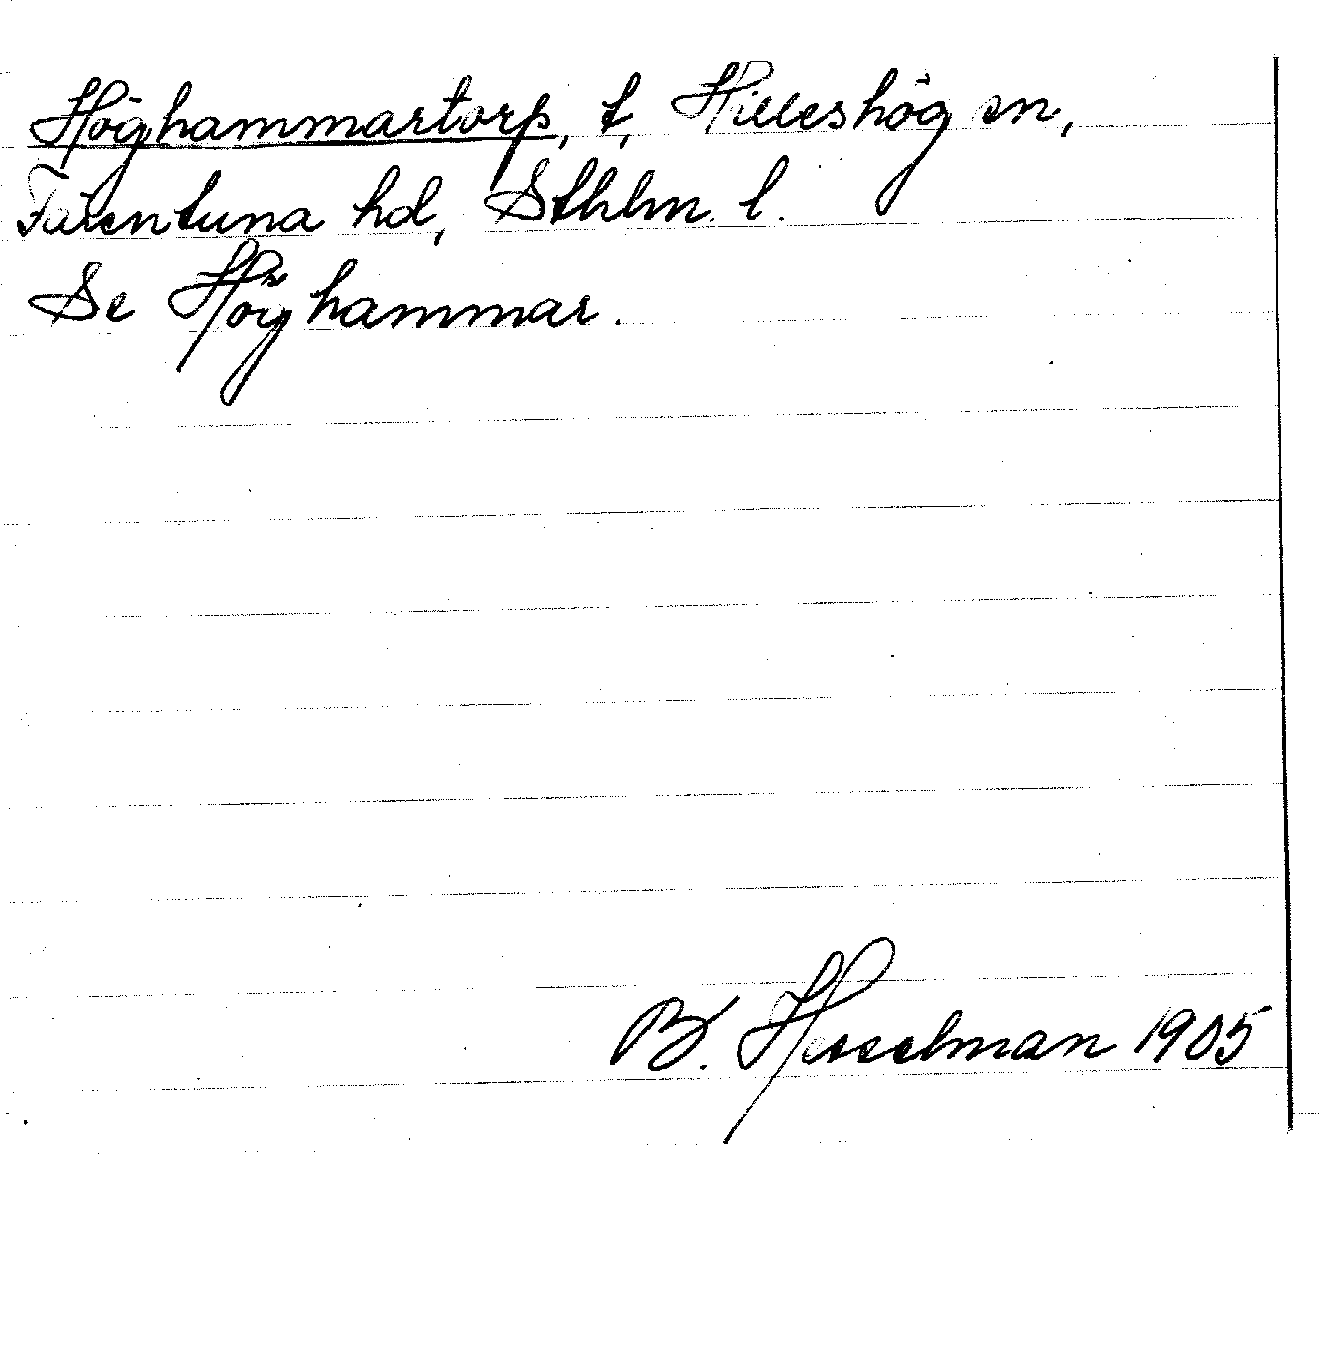 Höghammartorp, t, Hilleshög sn,
Färentuna hd, Sthlm l.
Se Höghammar.
B. Hesselman 1905